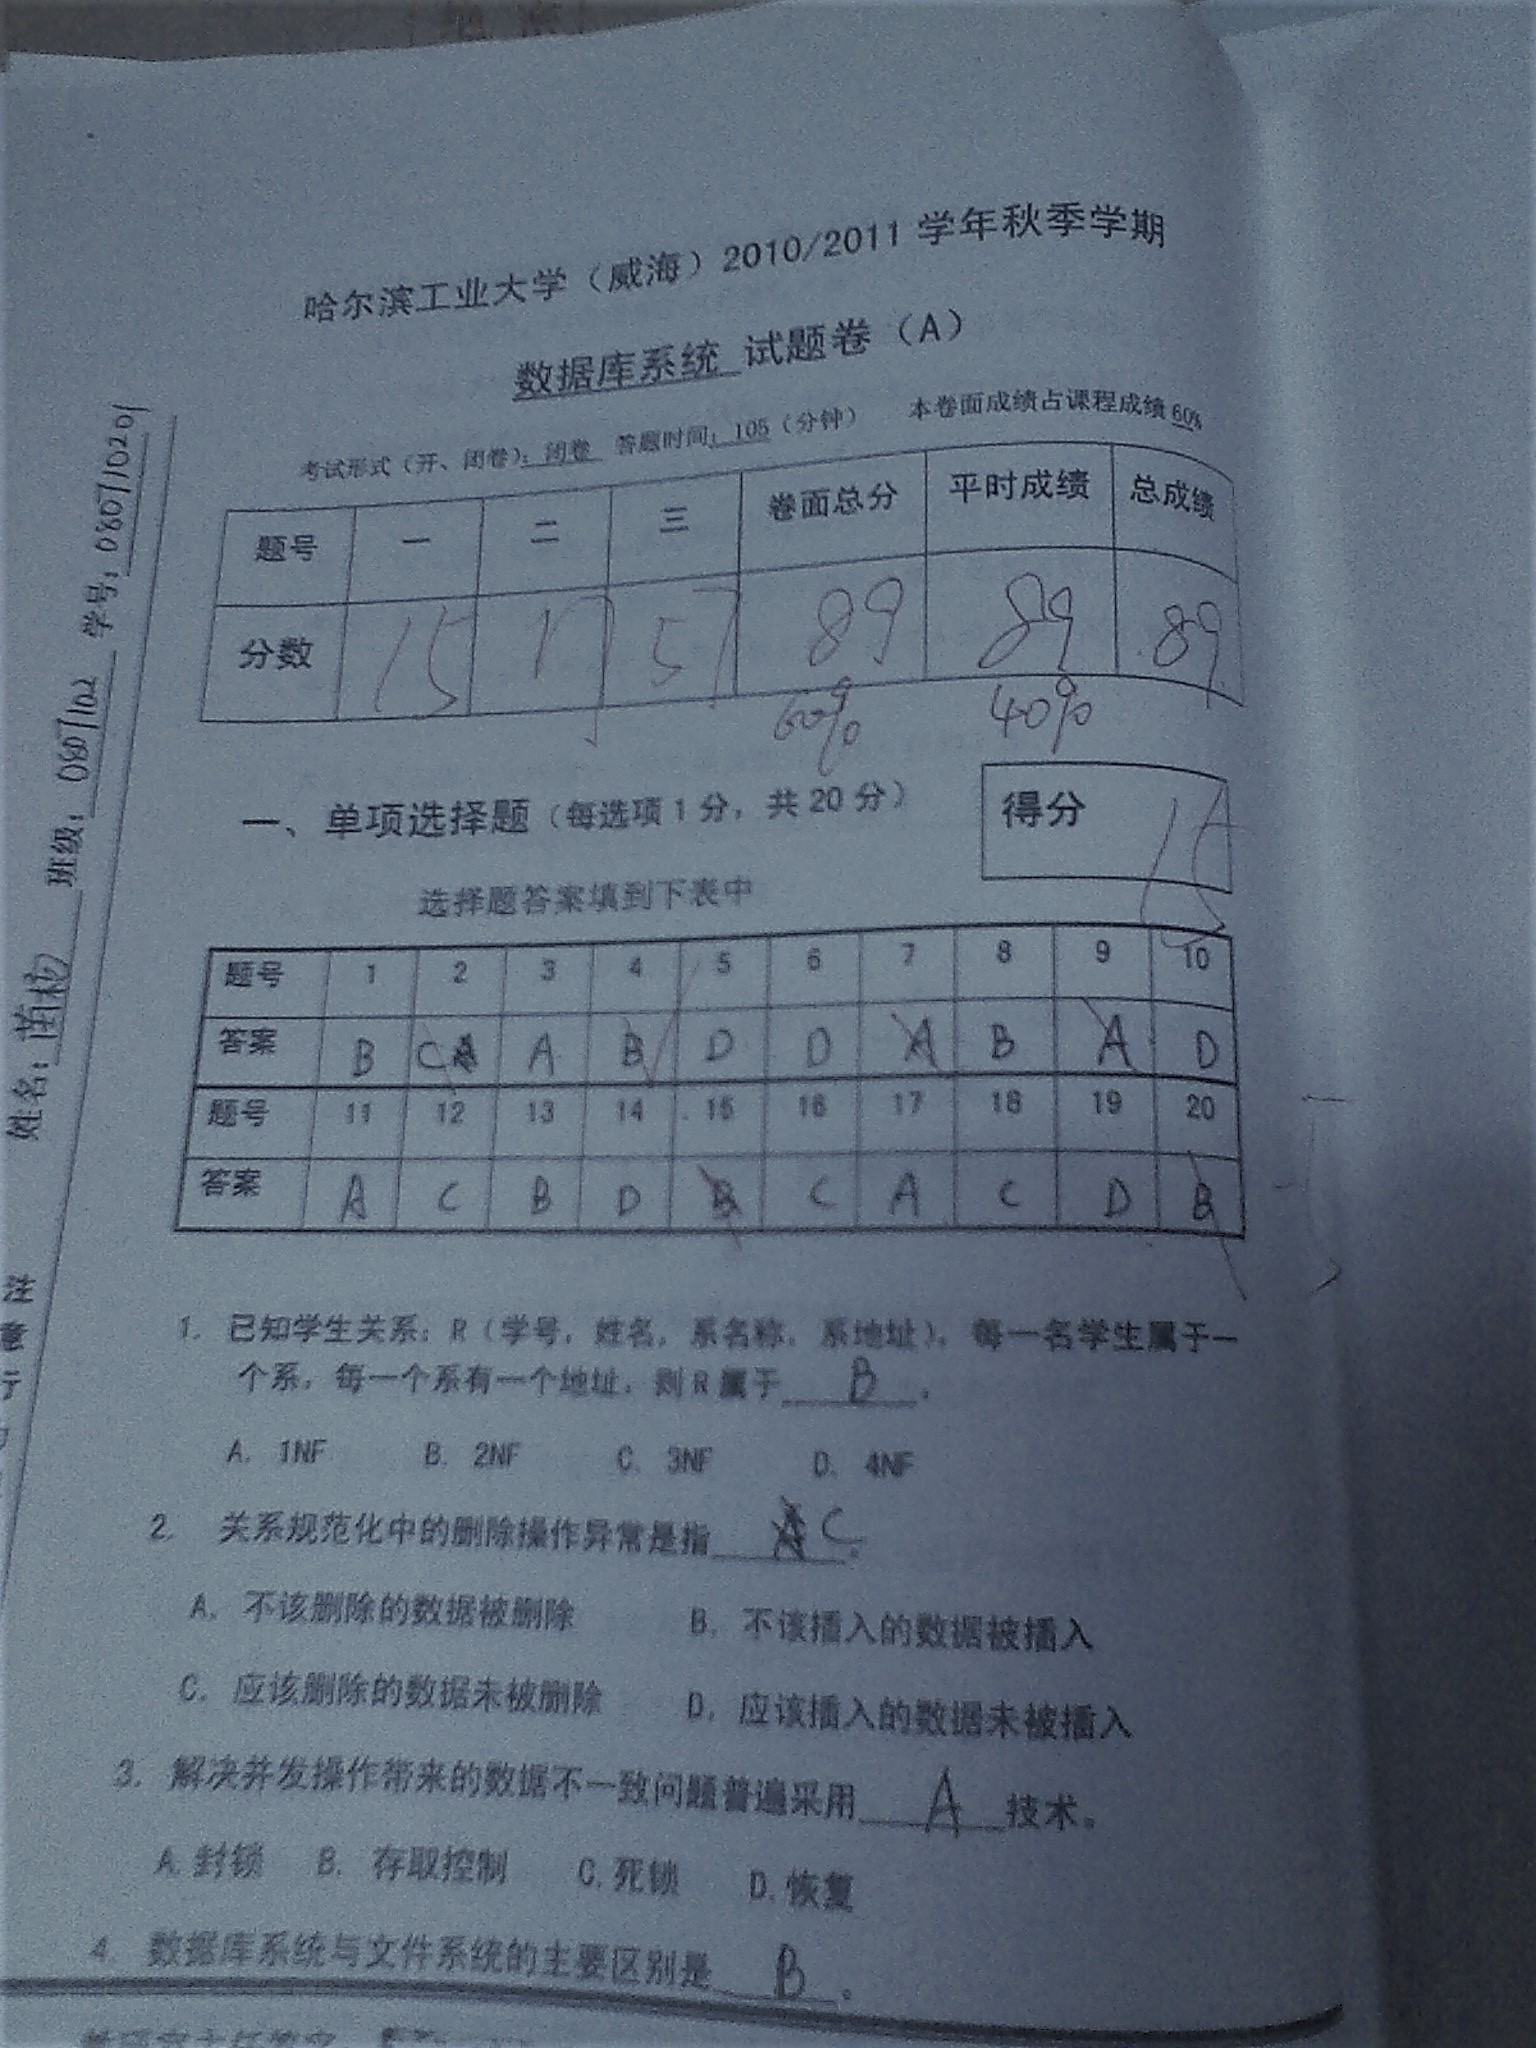 哈尔滨工业大学（威海）2010/2011 学年秋季学期
数据库系统 试题卷（A）
考试形式（开、闭卷）：闭卷 答题时间：105（分钟） 本卷面成绩占课程成绩 60%
题号 一 二 三 卷面总分 平时成绩 总成绩
分数 15 17 57 89 89 89
60% 40%
一、单项选择题（每选项 1 分，共 20 分）
得分 15
选择题答案填到下表中
题号 1 2 3 4 5 6 7 8 9 10
答案 B C A B D D A B A D
题号 11 12 13 14 15 16 17 18 19 20
答案 A C B D B C A C D B
1. 已知学生关系：R（学号，姓名，系名称，系地址），每一名学生属于一
个系，每一个系有一个地址，则 R 属于 B 。
A. 1NF B. 2NF C. 3NF D. 4NF
2. 关系规范化中的删除操作异常是指 A C 。
A. 不该删除的数据被删除 B. 不该插入的数据被插入
C. 应该删除的数据未被删除 D. 应该插入的数据未被插入
3. 解决并发操作带来的数据不一致问题普遍采用 A 技术。
A. 封锁 B. 存取控制 C. 死锁 D. 恢复
4. 数据库系统与文件系统的主要区别是 B 。
姓名：苗杨 班级：0807102 学号：080710201
注
意
行